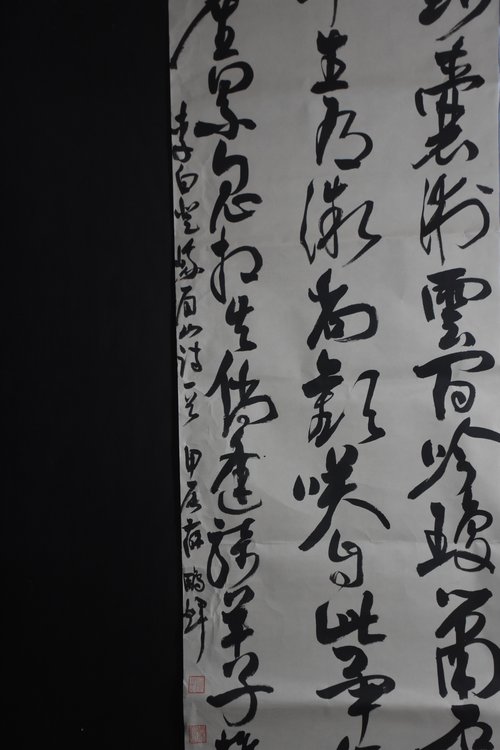 囊術雲間吟瓊簫石
生有微尚歡咲自此畢
塵累忽相失倘逢騎羊子
李白登峨眉山詩一首 甲辰